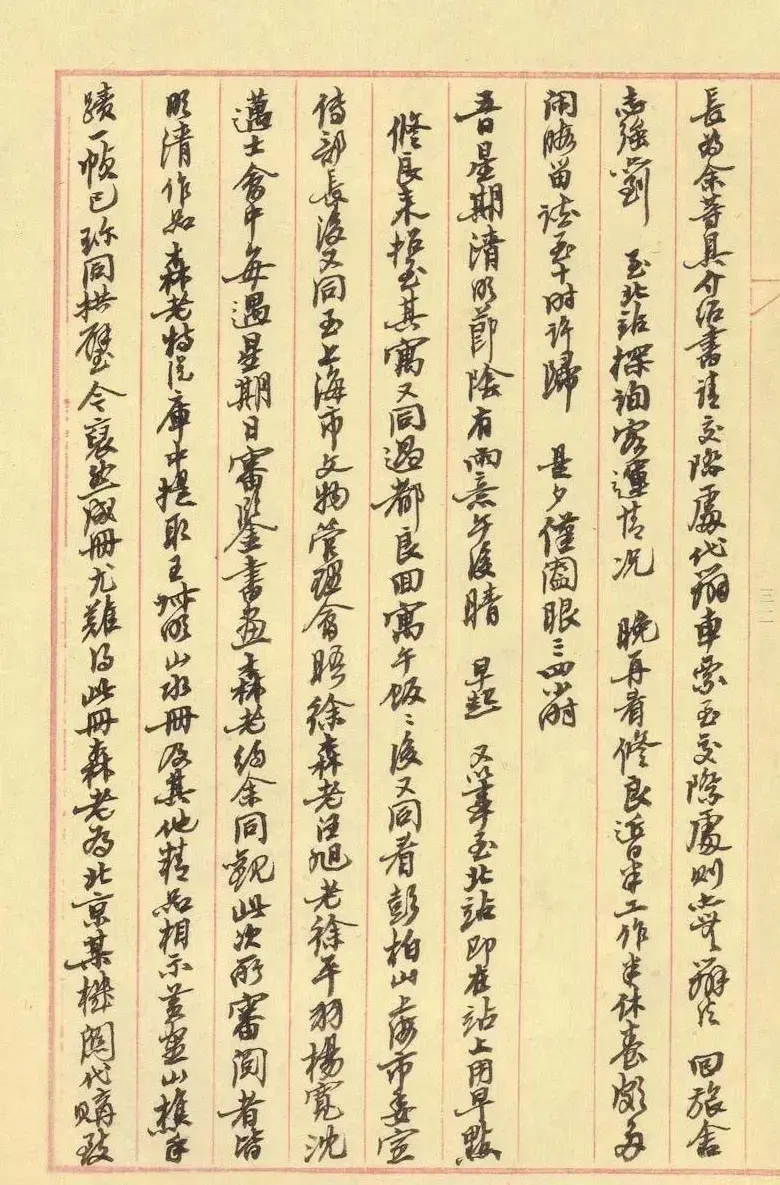 長為余等具介紹書請交際處代辦車票至交際處則無辦法 回旅舍
志強 劉 至北站探詢客運情况 晚再看修良近日半工作半休養頗多
閒暇留談至十时許歸 是夕僅闔眼三四小时
五日星期清明節陰有雨意午後晴 早起 又 至北站即在站上用早點
修良来 至其寓又同過都良回寓午飯〻後又同看彭柏山上海市委宣
傳部長後又同至上海市文物管理會晤徐森老汪旭老徐平羽楊寬沈
邁士會中每遇星期日審鑒書画森老約余同觀此次所審閱者皆
明清作品森老特從庫中提取王叔明山水册及其他精品相示黃鶴山樵手
蹟一幀已珍同拱璧今裒然成册尤難得此册森老為北京某機關代購致
三二